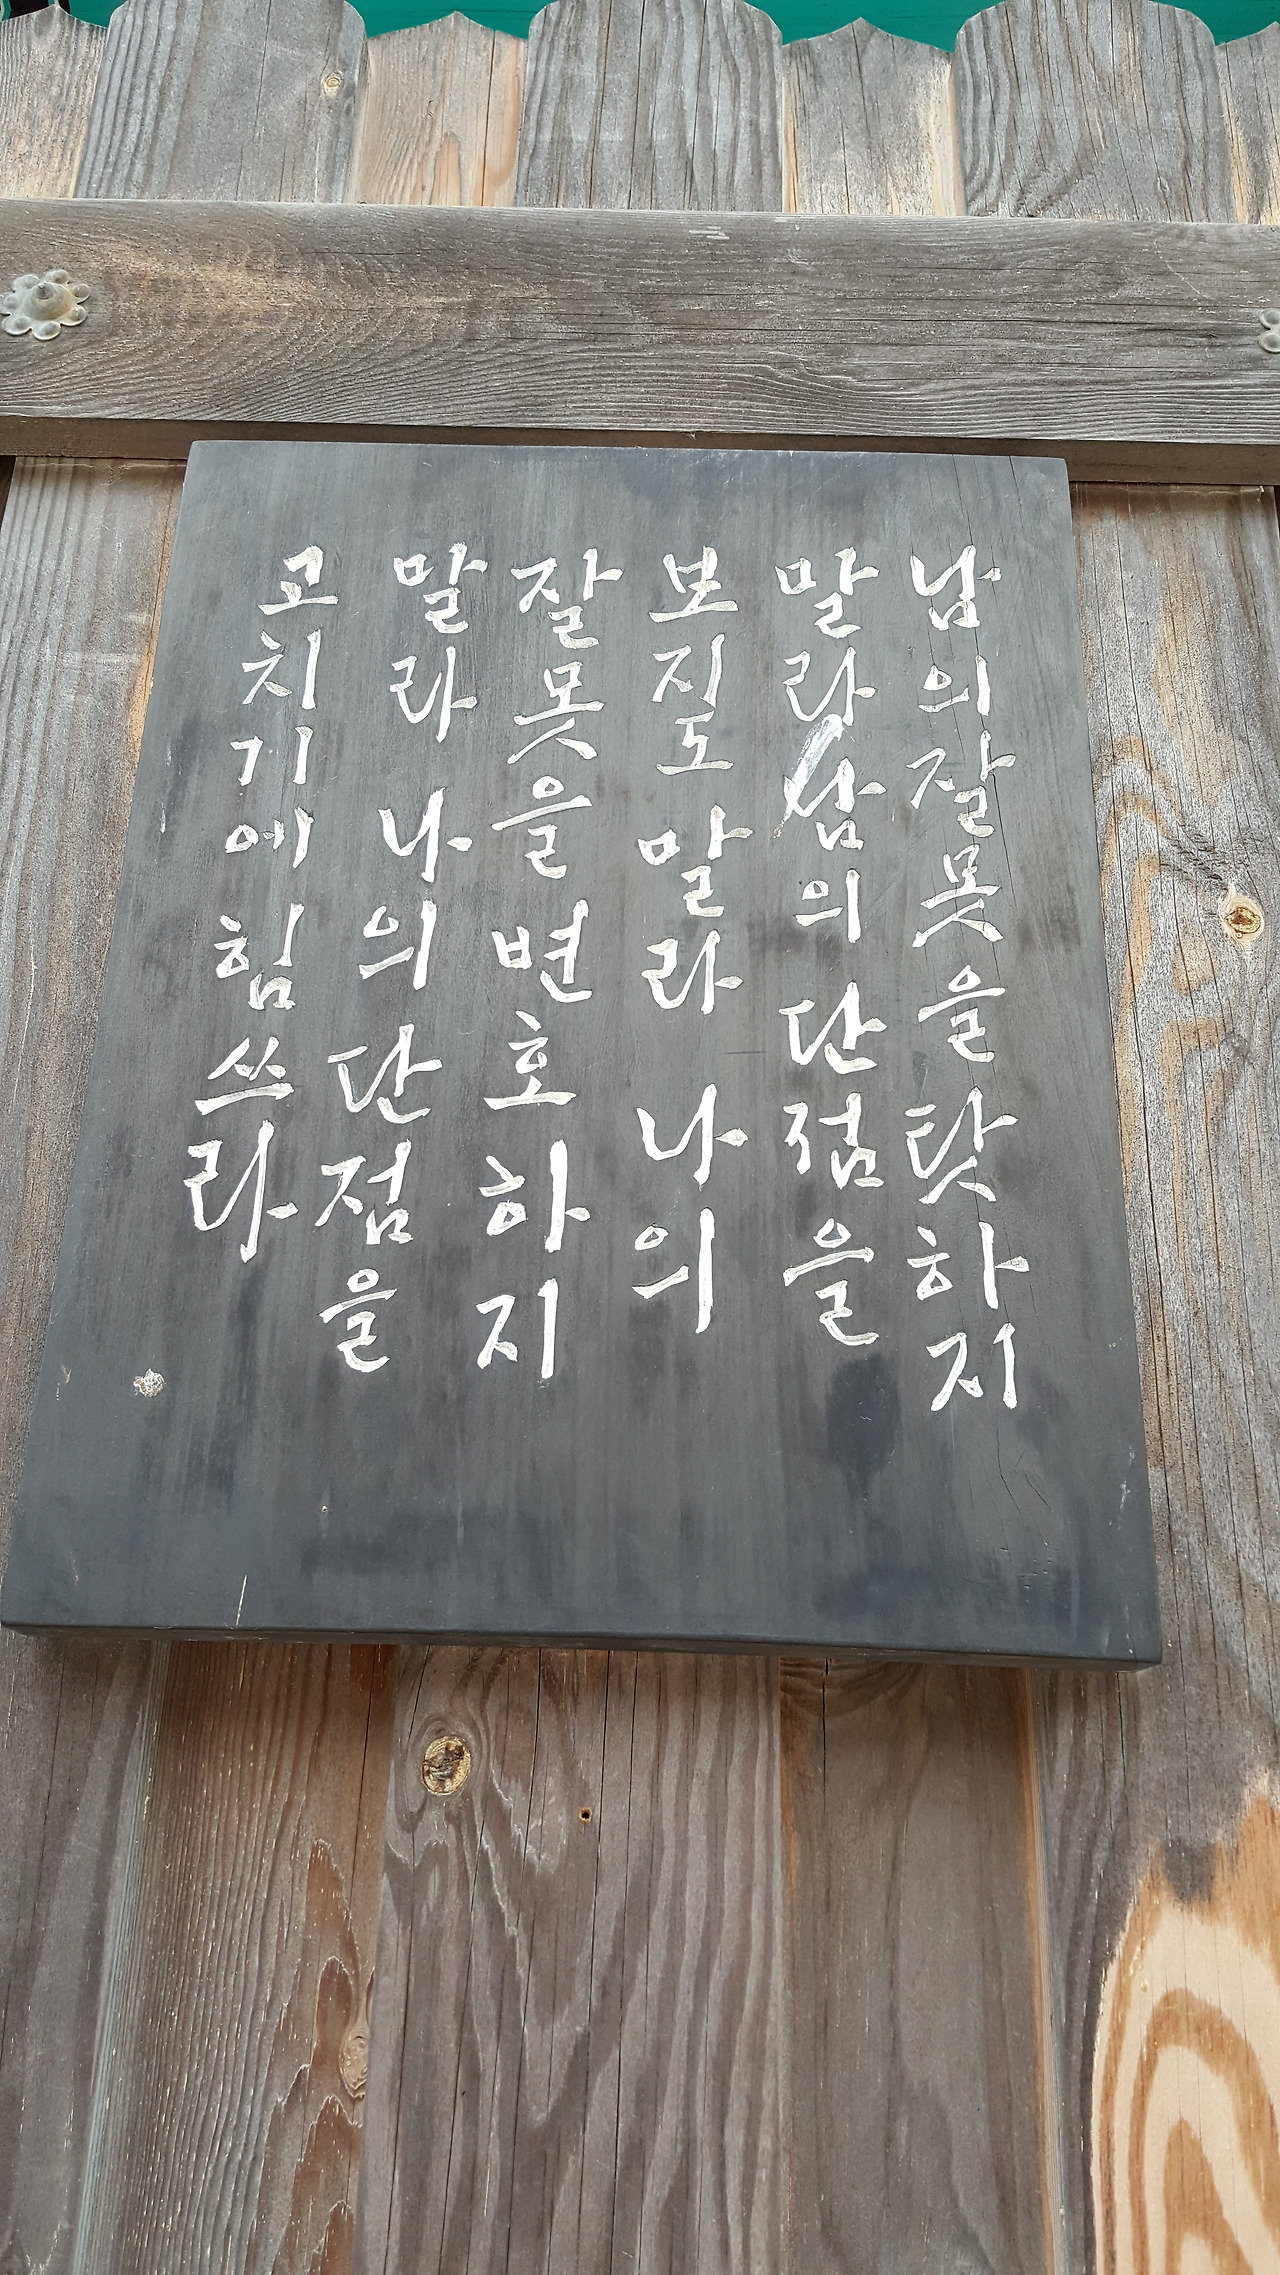 남의 잘못을 탓하지
말라 남의 단점을
보지도 말라 나의
잘못을 변호하지
말라 나의 단점을
고치기에 힘쓰라